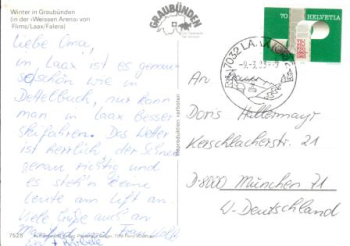 Winter in Graubünden
(in der «Weissen Arena» von
Flims/Laax/Falera)
GRAUBÜNDEN
70 HELVETIA
7032 LAAX
Liebe Oma,
in Laax ist es genau
so schön wie in
Dettelbach, nur kann
man in Laax besser
Ski fahren. Das Wetter
ist herrlich, der Schnee
genau richtig und
es steh'n keine
Leute am Lift an.
Viele Grüße auch an
An
Doris Hüttermayr
Kerschlacherstr. 21
D-8000 München 71
W-Deutschland